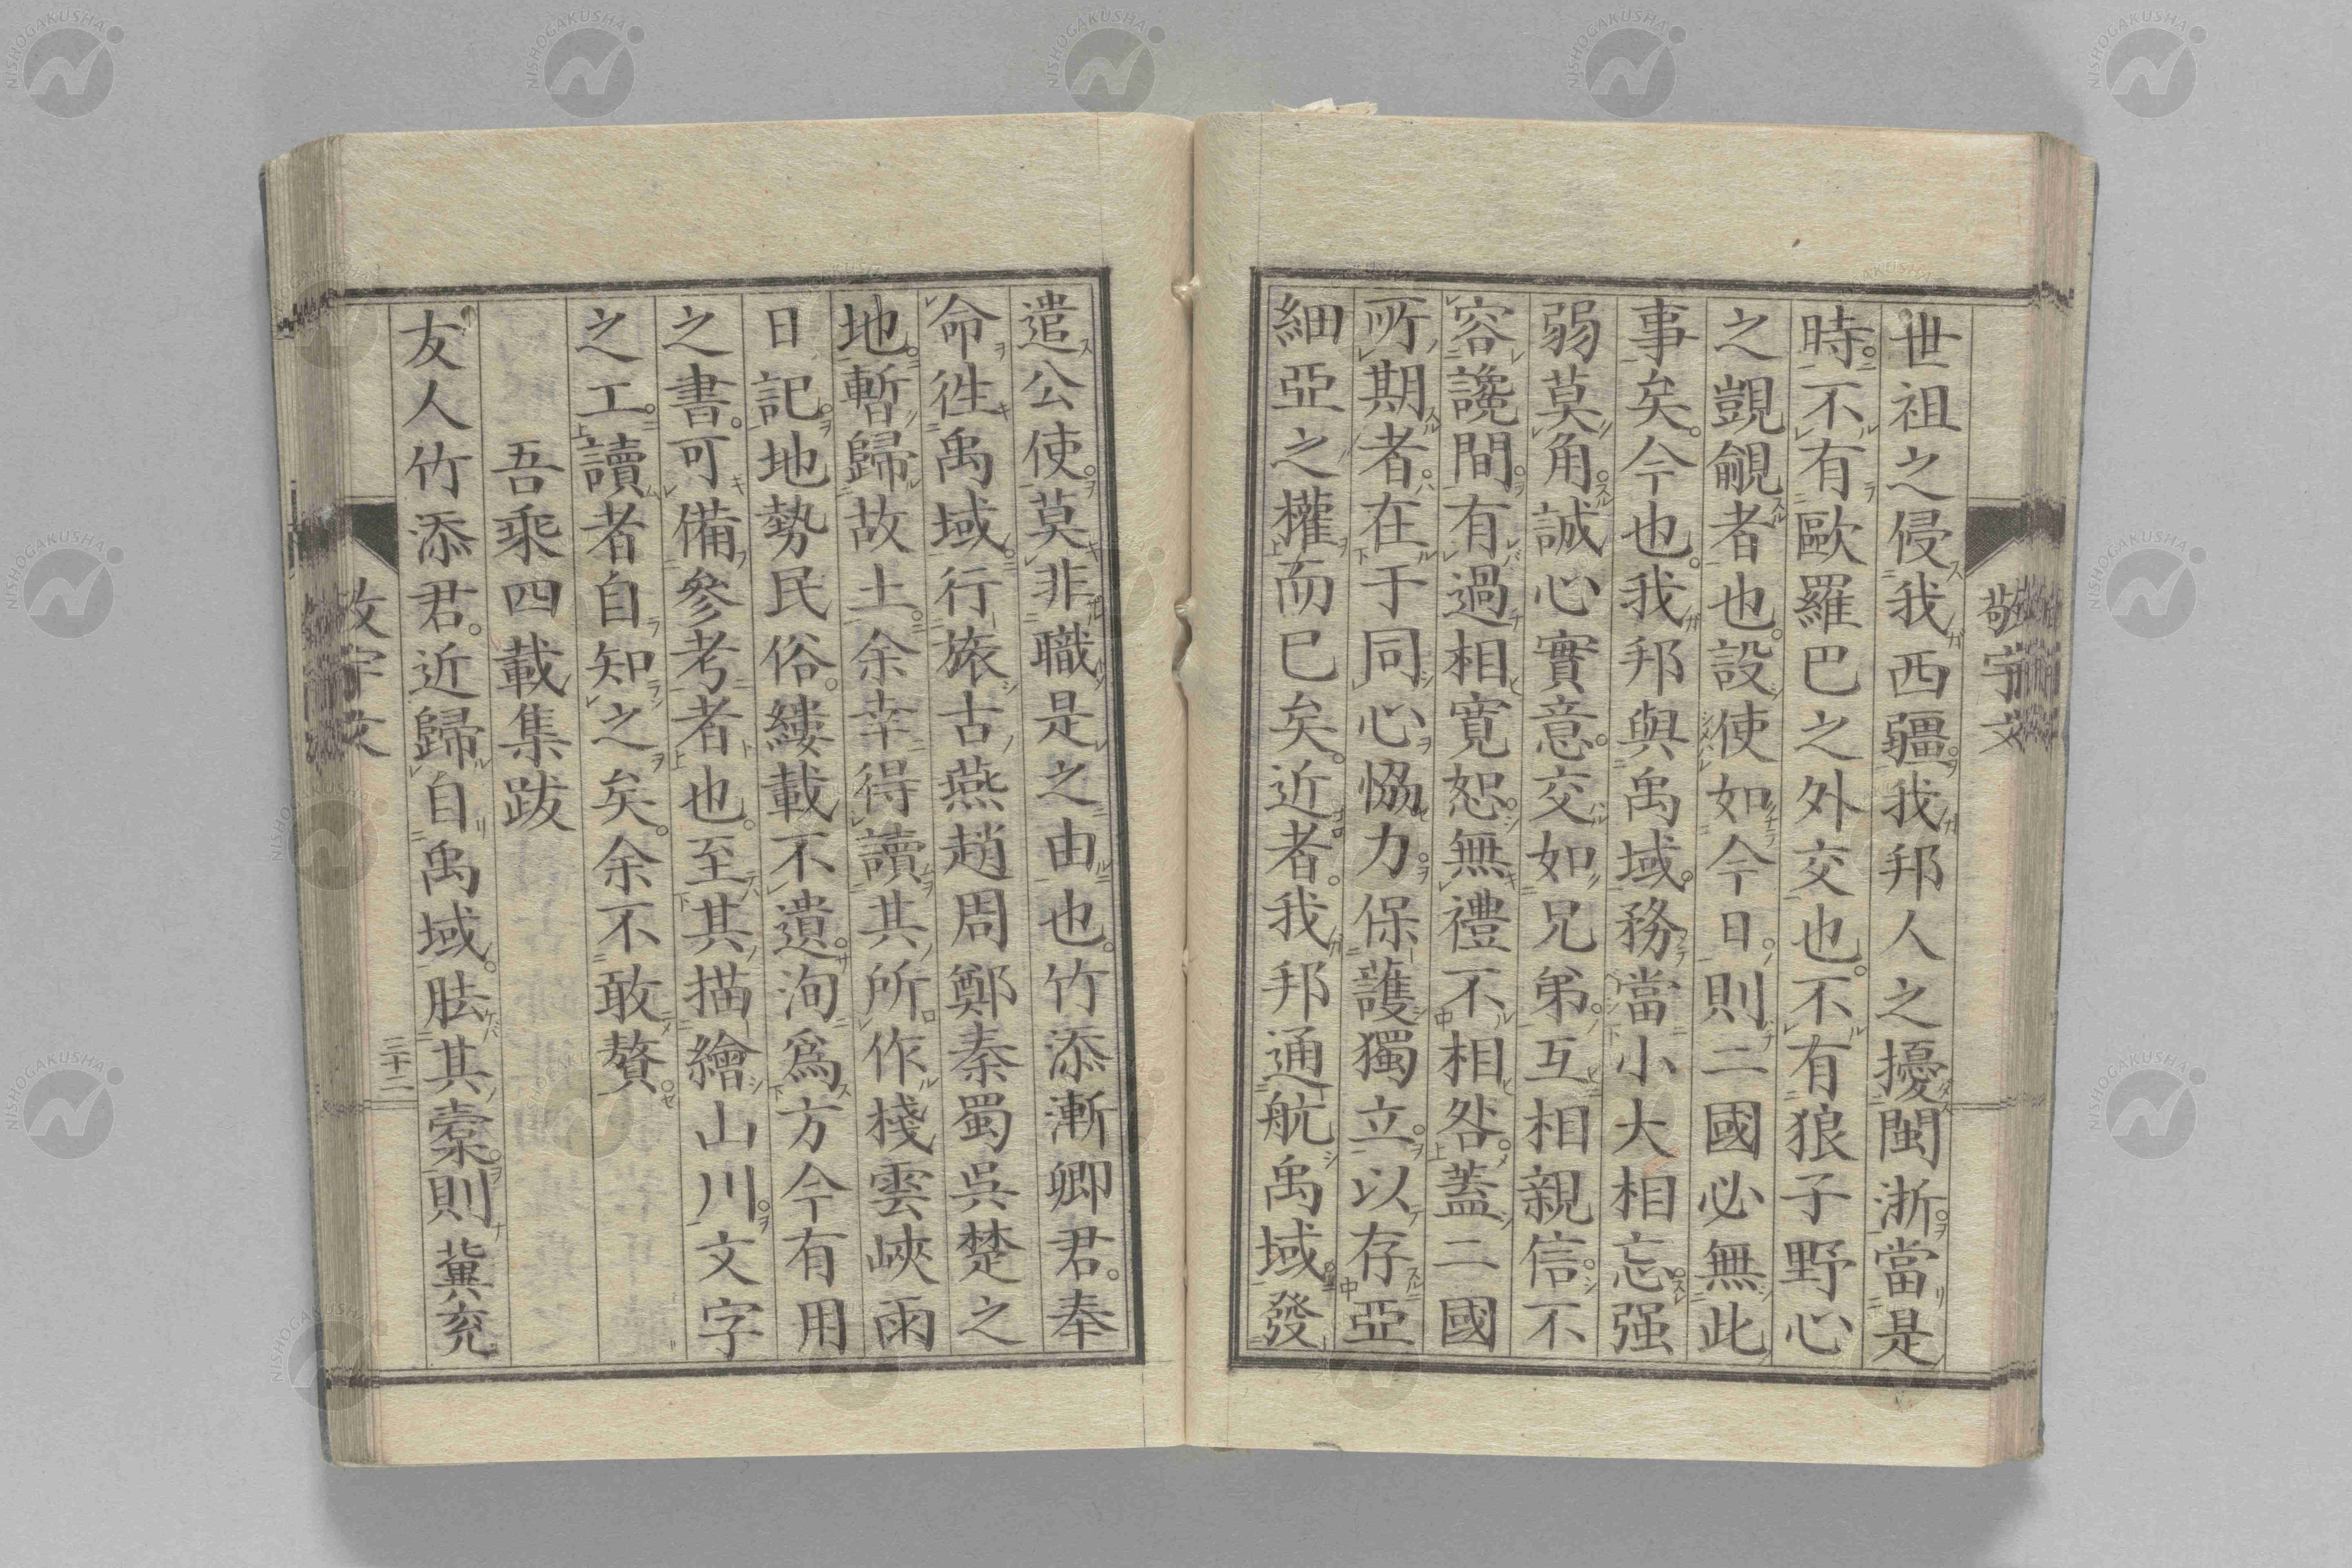 敬宇文
世祖之侵我西疆。我邦人之擾閩浙。當是
時。不有歐羅巴之外交也。不有狼子野心
之覬覦者也。設使如今日。則二國必無此
事矣。今也。我邦與禹域。務當小大相忘。强
弱莫角。誠心實意。交如兄弟。互相親信。不
容讒間。有過相寬恕。無禮不相咎。蓋二國
所期者。在于同心恊力。保護獨立。以存亞
細亞之權而已矣。近者。我邦通航禹域。發
遣公使。莫非職是之由也。竹添漸卿君。奉
命徃禹域。行旅古燕趙周鄭秦蜀吳楚之
地。暫歸故土。余幸得讀其所作棧雲峽雨
日記。地勢民俗。縷載不遺。洵爲方今有用
之書。可備參考者也。至其描繪山川。文字
之工。讀者自知之矣。余不敢贅。
吾乘四載集跋
友人竹添君。近歸自禹域。胠其橐。則冀兖
敬宇文
二十二
NISHOGAKUSHA